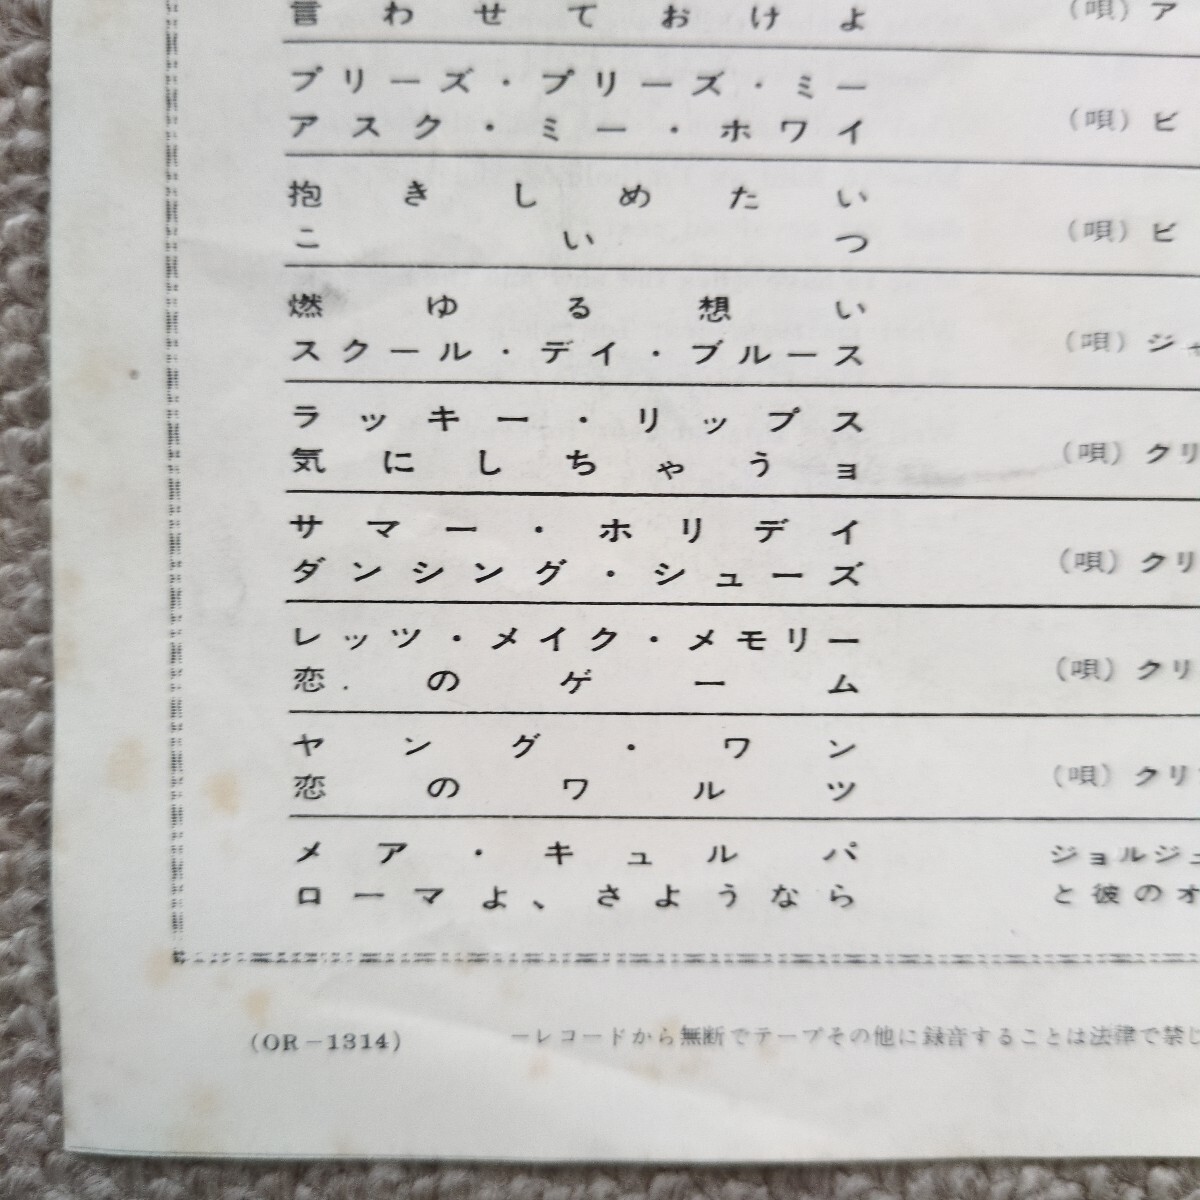 言わせておけよ (唄) ア
プリーズ・プリーズ・ミー
アスク・ミー・ホワイ (唄) ビ
抱きしめたい
こいつ (唄) ビ
燃ゆる想い
スクール・デイ・ブルース (唄) ジャ
ラッキー・リップス
気にしちゃうョ (唄) クリ
サマー・ホリデイ
ダンシング・シューズ (唄) クリ
レッツ・メイク・メモリー
恋のゲーム (唄) クリ
ヤング・ワン
恋のワルツ (唄) クリ
メア・キュルパ ジョルジュ
ローマよ、さようなら と彼のオ
(OR-1314) ーレコードから無断でテープその他に録音することは法律で禁じ